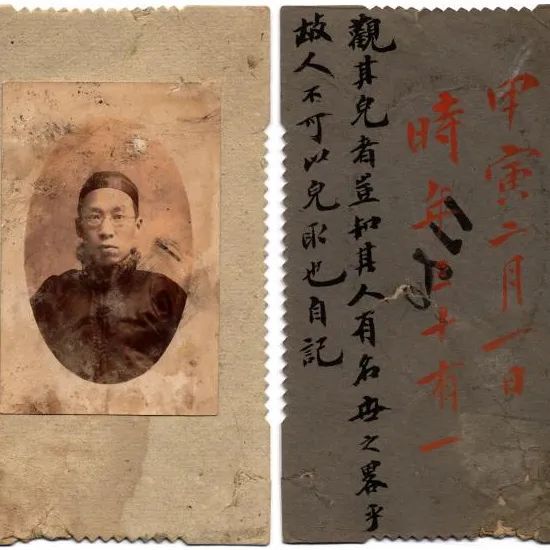 甲寅二月一日
時年十有一
觀其皃者豈知其人有名世之畧乎
故人不可以皃取也自記